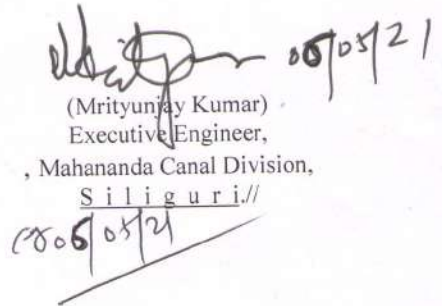 05/05/21
(Mrityunjay Kumar)
Executive Engineer,
, Mahananda Canal Division,
S i l i g u r i.//
05/05/21